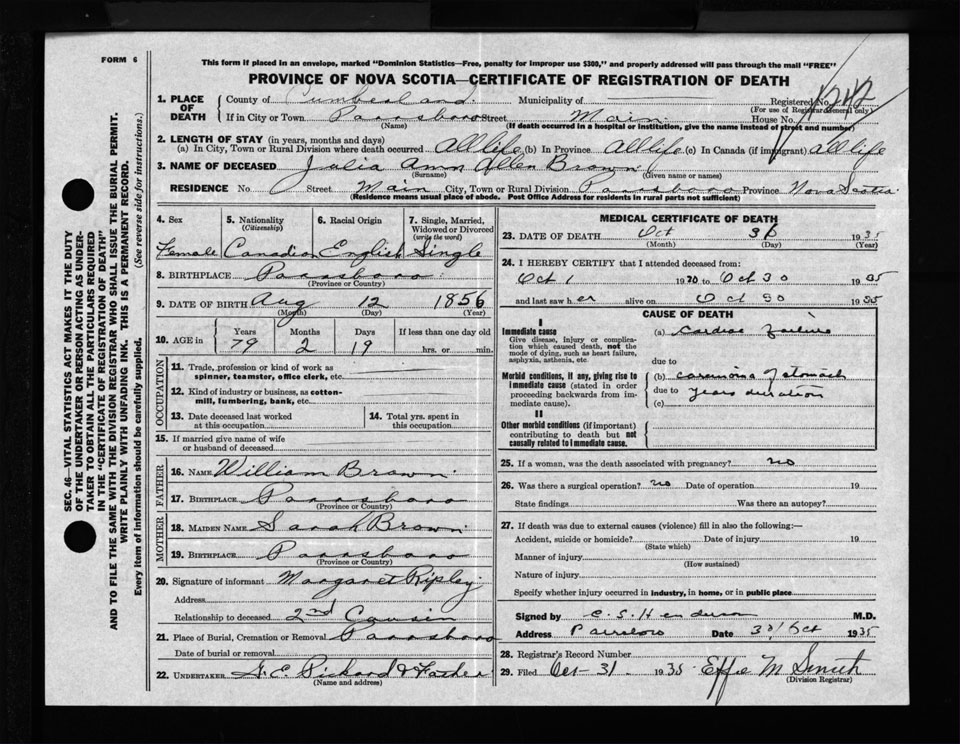 FORM 6
This form if placed in an envelope, marked "Dominion Statistics—Free, penalty for improper use $300," and properly addressed will pass through the mail "FREE"
PROVINCE OF NOVA SCOTIA—CERTIFICATE OF REGISTRATION OF DEATH
SEC. 46—VITAL STATISTICS ACT MAKES IT THE DUTY
OF THE UNDERTAKER OR PERSON ACTING AS UNDER-
TAKER TO OBTAIN ALL THE PARTICULARS REQUIRED
IN THE "CERTIFICATE OF REGISTRATION OF DEATH"
AND TO FILE THE SAME WITH THE DIVISION REGISTRAR WHO SHALL ISSUE THE BURIAL PERMIT.
WRITE PLAINLY WITH UNFADING INK. THIS IS A PERMANENT RECORD.
Every item of information should be carefully supplied. (See reverse side for instructions.)
1. PLACE OF DEATH
County of Cumberland Municipality of Registered No.
(For use of Registrar General only)
If in City or Town Parrsboro Street Main House No.
(Name) (If death occurred in a hospital or institution, give the name instead of street and number)
2. LENGTH OF STAY (in years, months and days)
(a) In City, Town or Rural Division where death occurred All life (b) In Province All life (c) In Canada (if immigrant) all life
3. NAME OF DECEASED Julia Ann Allen Brown
(Surname) (Given name or names)
RESIDENCE No. Street Main City, Town or Rural Division Parrsboro Province Nova Scotia
(Residence means usual place of abode. Post Office Address for residents in rural parts not sufficient)
4. Sex 5. Nationality (Citizenship) 6. Racial Origin 7. Single, Married, Widowed or Divorced (write the word)
Female Canadian English Single
8. BIRTHPLACE Parrsboro
(Province or Country)
9. DATE OF BIRTH Aug 12 1856
(Month) (Day) (Year)
10. AGE in Years Months Days If less than one day old
79 2 19 hrs. or min.
OCCUPATION
11. Trade, profession or kind of work as spinner, teamster, office clerk, etc.
12. Kind of industry or business, as cotton-mill, lumbering, bank, etc.
13. Date deceased last worked at this occupation
14. Total yrs. spent in this occupation
15. If married give name of wife or husband of deceased
FATHER
16. NAME William Brown
17. BIRTHPLACE Parrsboro
(Province or Country)
MOTHER
18. MAIDEN NAME Sarah Brown
19. BIRTHPLACE Parrsboro
(Province or Country)
20. Signature of informant Margaret Ripley
Address
Relationship to deceased 2nd Cousin
21. Place of Burial, Cremation or Removal Parrsboro
Date of burial or removal
22. UNDERTAKER
(Name and address)
MEDICAL CERTIFICATE OF DEATH
23. DATE OF DEATH Oct 1935
(Month) (Day) (Year)
24. I HEREBY CERTIFY that I attended deceased from:
Oct 1 19 to Oct 30 1935
and last saw her alive on Oct 30 1935
CAUSE OF DEATH
I
Immediate cause
Give disease, injury or complication which caused death, not the mode of dying, such as heart failure, asphyxia, asthenia, etc.
(a) Cardiac failure
due to
Morbid conditions, if any, giving rise to immediate cause (stated in order proceeding backwards from immediate cause).
(b) carcinoma of stomach
due to years duration
(c)
II
Other morbid conditions (if important) contributing to death but not causally related to immediate cause.
25. If a woman, was the death associated with pregnancy? no
26. Was there a surgical operation? no Date of operation 19
State findings Was there an autopsy?
27. If death was due to external causes (violence) fill in also the following:—
Accident, suicide or homicide? Date of injury 19
(State which)
Manner of injury
(How sustained)
Nature of injury
Specify whether injury occurred in industry, in home, or in public place
Signed by M.D.
Address Parrsboro Date 30/Oct 1935
28. Registrar's Record Number
29. Filed Oct 31 1935 Effie M Smith
(Division Registrar)